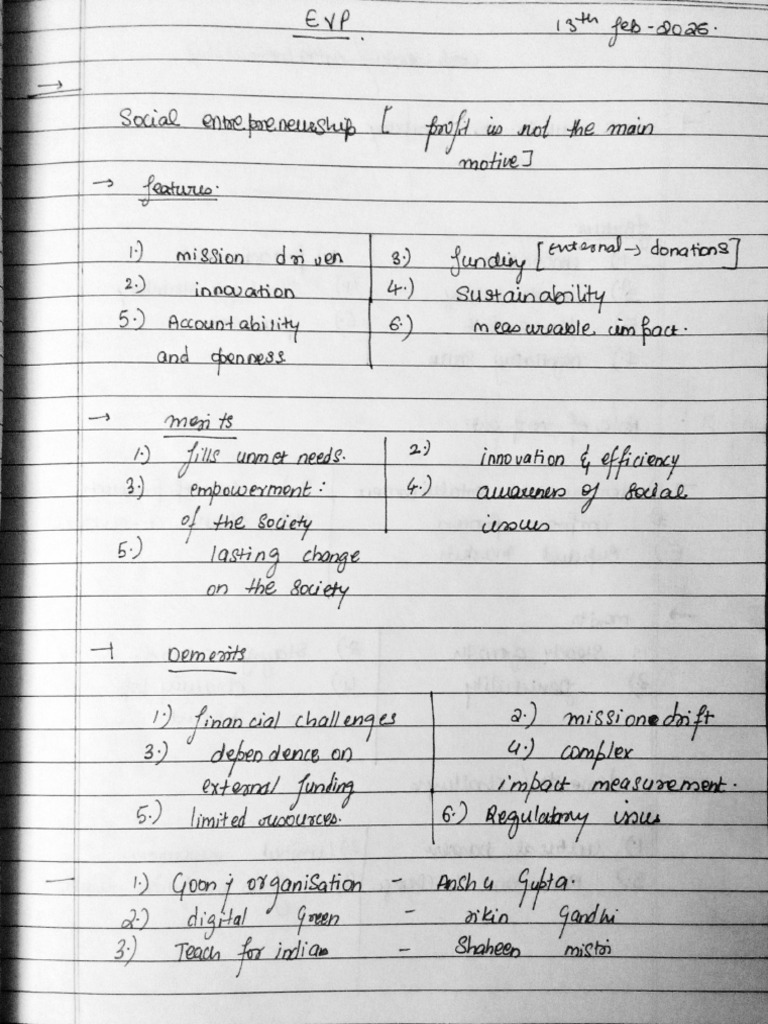 EVP.
13th feb-2026.
→
Social entrepreneurship [ profit is not the main
motive]
→ features.
1.) mission driven
3.) funding [external → donations]
2.) innovation
4.) Sustainability
5.) Accountability
and openness
6.) measureable impact.
→ merits
1.) fills unmet needs.
2.) innovation & efficiency
3.) empowerment:
of the society
4.) awareness of social
issues
5.) lasting change
on the society
→ Demerits
1.) financial challenges
2.) mission drift
3.) dependence on
external funding
4.) complex
impact measurement.
5.) limited resources.
6.) Regulatory issues
— 1.) Goonj organisation – Anshu Gupta.
2.) digital Green – rikin Gandhi
3.) Teach for india – Shaheen mistri